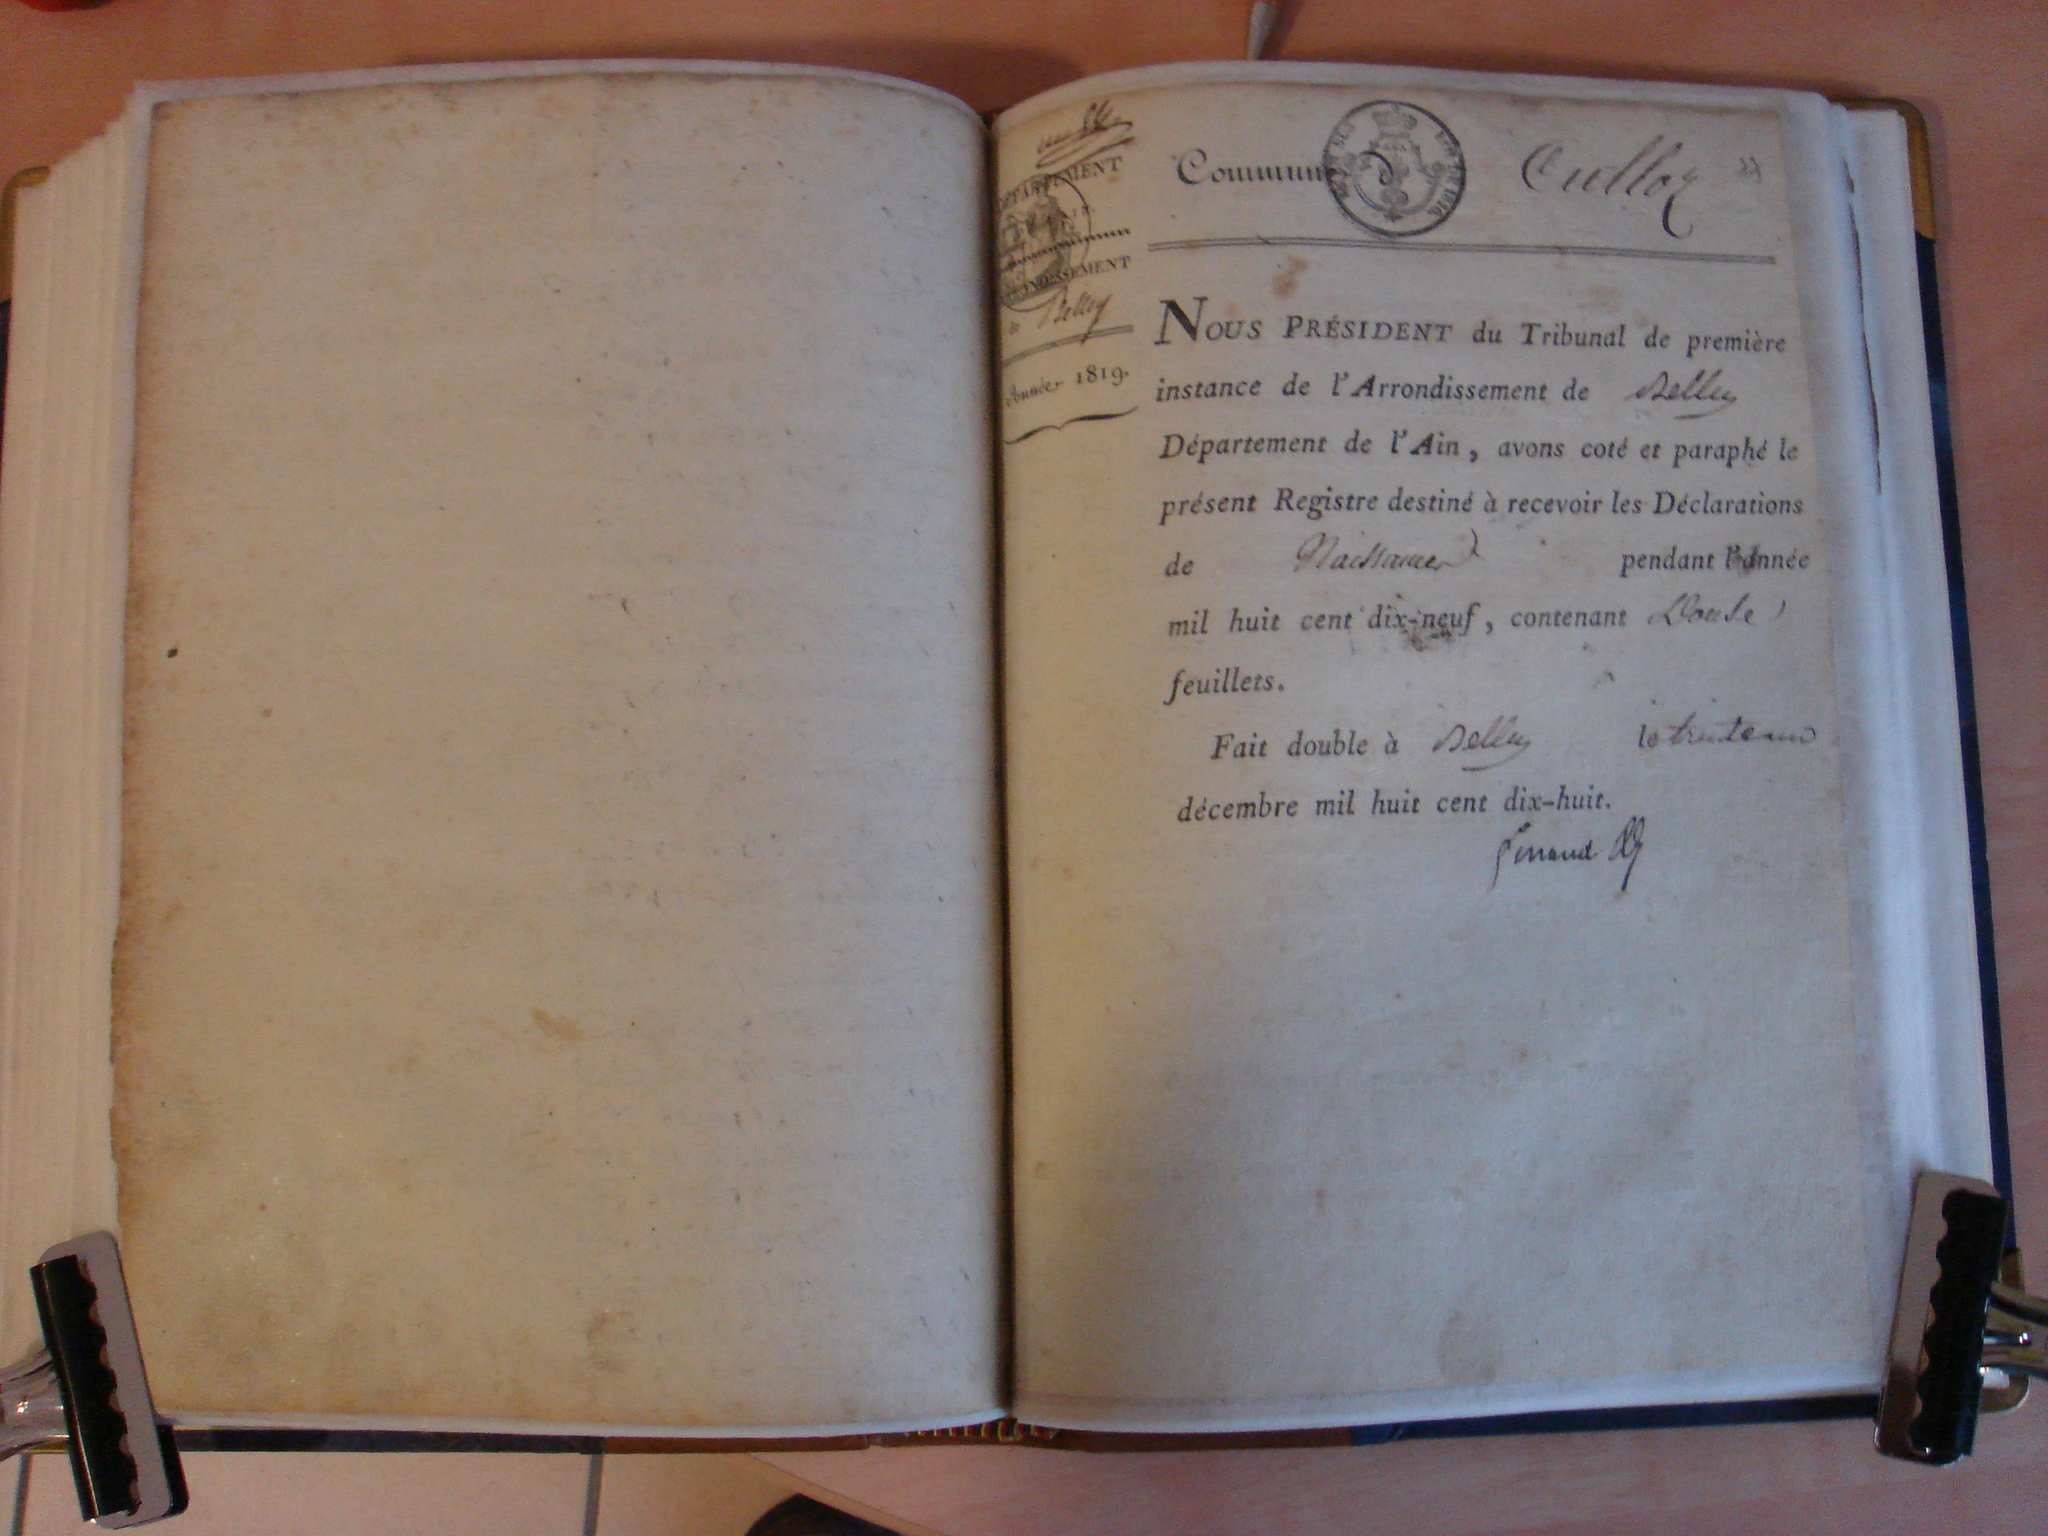 DÉPARTEMENT
ARRONDISSEMENT
de Belley
Année 1819.
Commune Culloz
NOUS PRÉSIDENT du Tribunal de première
instance de l'Arrondissement de Belley
Département de l'Ain, avons coté et paraphé le
présent Registre destiné à recevoir les Déclarations
de Naissances pendant l'année
mil huit cent dix-neuf, contenant Douse
feuillets.
Fait double à Belley le trente un
décembre mil huit cent dix-huit.